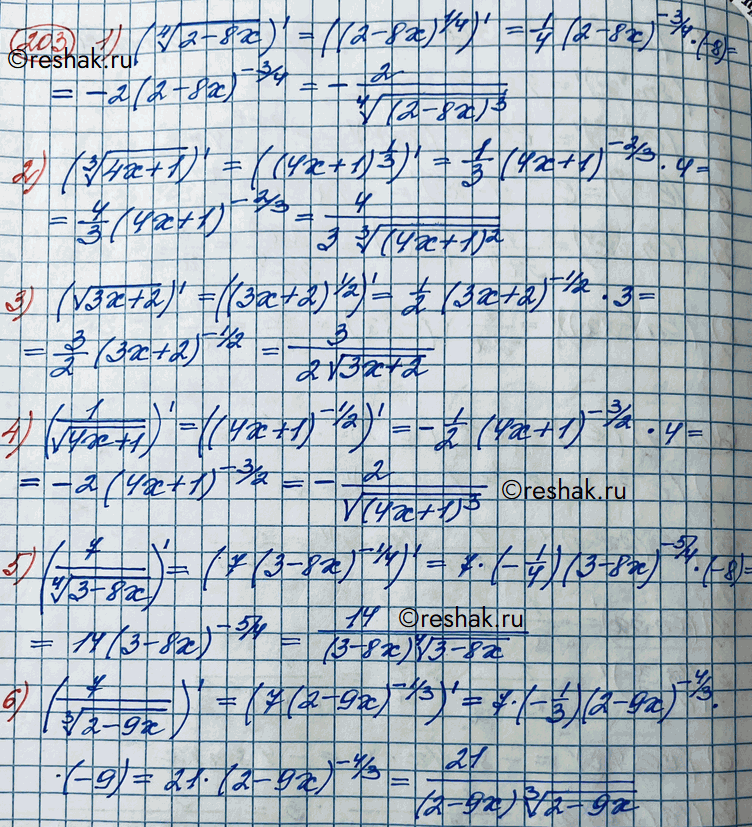 203 1) (⁴√(2-8x))' = ((2-8x)^{1/4})' = 1/4 (2-8x)^{-3/4}·(-8)=
©reshak.ru
= -2(2-8x)^{-3/4} = - 2/⁴√((2-8x)³)
2) (³√(4x+1))' = ((4x+1)^{1/3})' = 1/3 (4x+1)^{-2/3}·4=
= 4/3 (4x+1)^{-2/3} = 4/(3 ³√((4x+1)²))
3) (√(3x+2))' = ((3x+2)^{1/2})' = 1/2 (3x+2)^{-1/2}·3=
= 3/2 (3x+2)^{-1/2} = 3/(2√(3x+2))
4) (1/√(4x+1))' = ((4x+1)^{-1/2})' = -1/2 (4x+1)^{-3/2}·4=
= -2(4x+1)^{-3/2} = - 2/√((4x+1)³) ©reshak.ru
5) (7/⁴√(3-8x))' = (7(3-8x)^{-1/4})' = 7·(-1/4)(3-8x)^{-5/4}·(-8)=
©reshak.ru
= 14(3-8x)^{-5/4} = 14/((3-8x)⁴√(3-8x))
6) (7/³√(2-9x))' = (7(2-9x)^{-1/3})' = 7·(-1/3)(2-9x)^{-4/3}·
·(-9) = 21·(2-9x)^{-4/3} = 21/((2-9x)³√(2-9x))
©reshak.ru